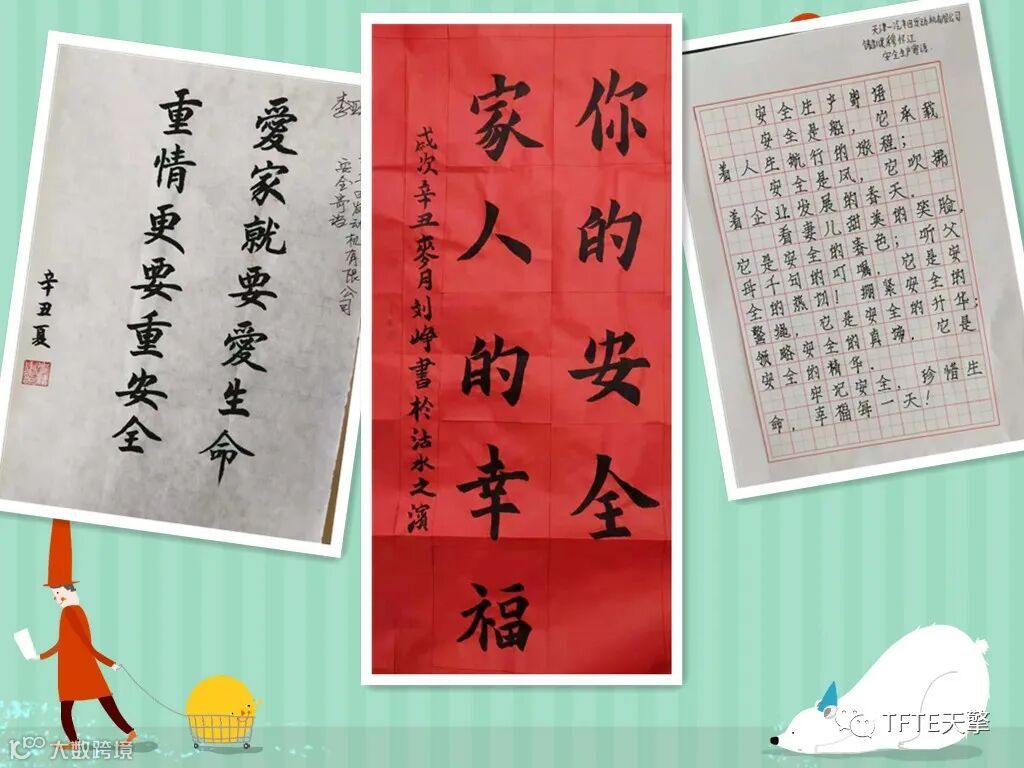 愛家就要愛生命
重情更要重安全
辛丑夏
安全寄语
发动机有限公司
你的安全
家人的幸福
歲次辛丑麥月刘峥書於沽水之濱
天津一汽丰田发动机有限公司
安全生产寄语
安全生产寄语
安全是船，它承载
着人生航行的旅程；
安全是风，它吹拂
着企业发展的春天。
看妻儿甜美的笑脸，
它是安全的春色；听父
母千句的叮嘱，它是安
全的热切！绷紧安全的
警绳，它是安全的升华；
领略安全的真谛，它是
安全的精华。
牢记安全，珍惜生
命，幸福每一天！
大数跨境
TFTE天擎